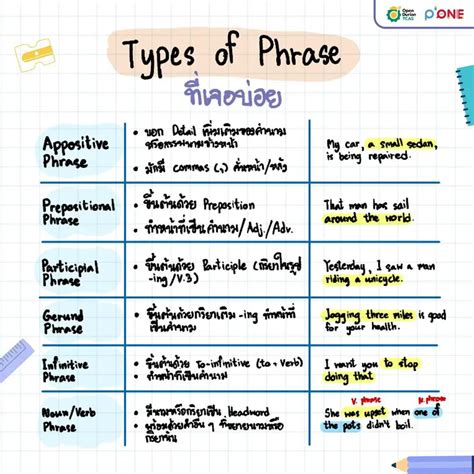 Open Durian TCAS
P'ONE
Types of Phrase
ที่เจอบ่อย
Appositive Phrase
• บอก Detail เพิ่มเติมของคำนาม
หรือกรรมนามข้างหน้า
• มักมี commas (,) คั่นหน้า/หลัง
My car, a small sedan,
is being repaired.
Prepositional Phrase
• ขึ้นต้นด้วย Preposition
• ทำหน้าที่เป็นคำนาม/Adj./Adv.
That man has sail
around the world.
Participial Phrase
• ขึ้นต้นด้วย Participle (กริยาในรูป
-ing/V.3)
Yesterday, I saw a man
riding a unicycle.
Gerund Phrase
• ขึ้นต้นด้วยกริยาเติม -ing ทำหน้าที่
เป็นคำนาม
Jogging three miles is good
for your health.
Infinitive Phrase
• ขึ้นต้นด้วย To-infinitive (to + Verb)
• ทำหน้าที่เป็นคำนาม
I want you to stop
doing that
Noun/Verb Phrase
• มีนามหรือกริยาเป็น Headword
• พร้อมด้วยคำอื่น ๆ ที่ขยายนามหรือ
กริยานั้น
V. phrase
N. phrase
She was upset when one of
the pots didn't boil.